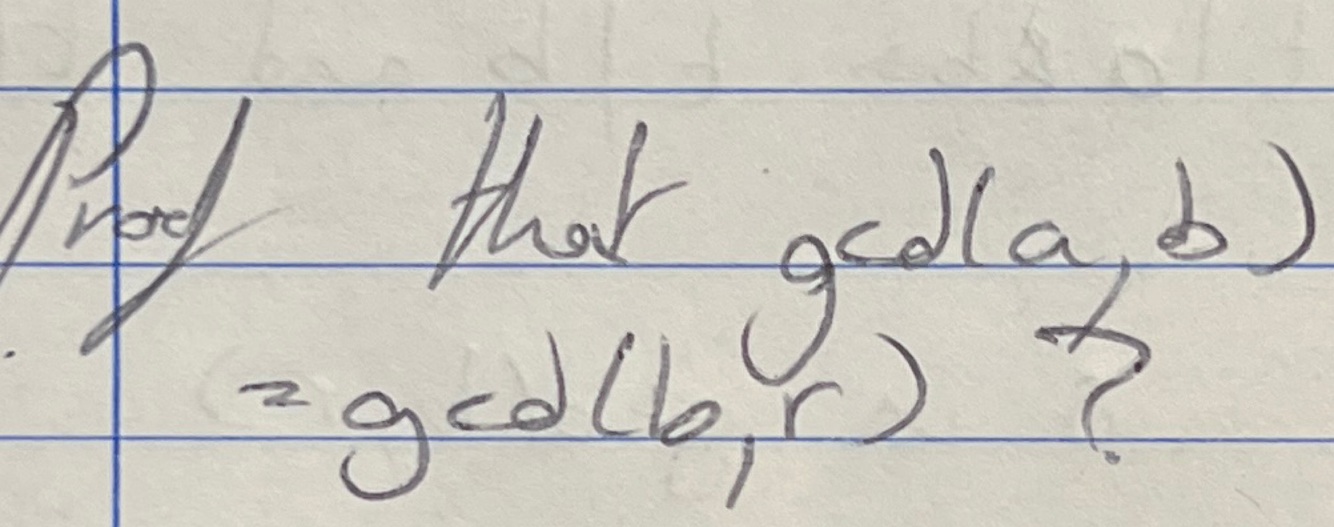 Proof that gcd(a,b)
=gcd(b,r) ?